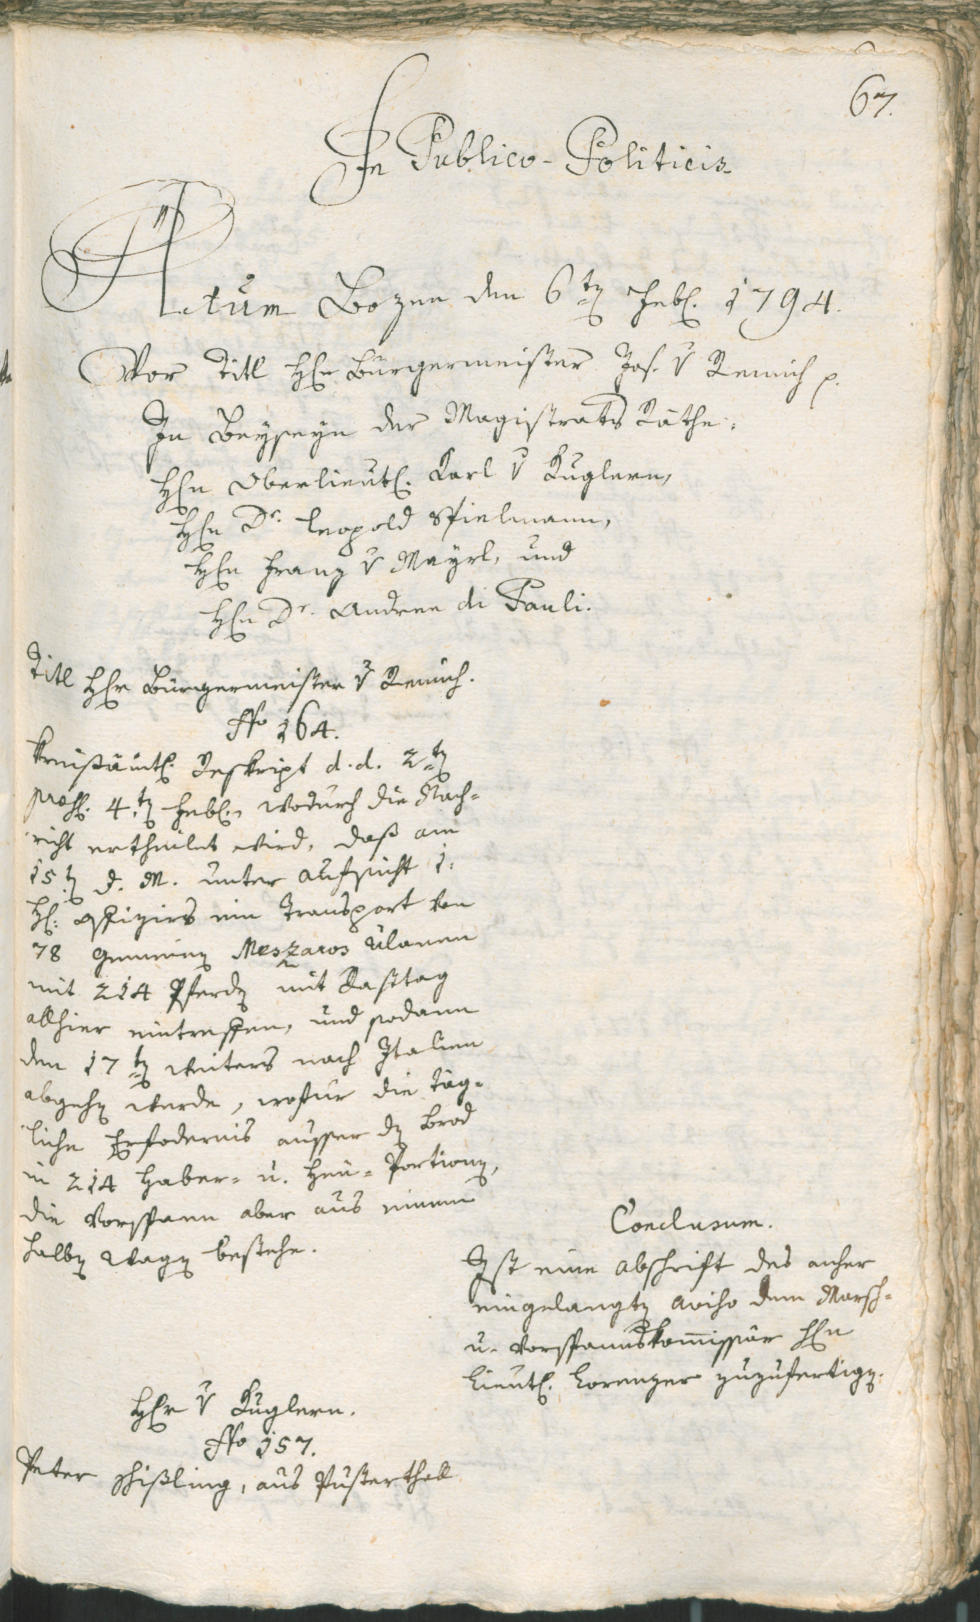 67.
In Publico-Politicis
Actum Bozen den 6ten Febr. 1794.
Vor Titl Hrn Bürgermeister Jos. v Remich p.
In Beyseyn der Magistrats Räthe:
Hrn Oberlieut. Karl v Kuglern,
Hrn Dr. Leopold Spielmann,
Hrn Franz v Mayrl, und
Hrn Dr. Andree di Pauli.
Titl Hr Bürgermeister v Remich.
No 164.
Kreisämtl. Reskript d. d. 2ten
4ten Febr., wodurch die Nach-
richt ertheilet wird, daß am
15ten d. M. unter Aufsicht 1.
H: Offiziers ein Transport von
78 gemeinen Meszaros Ulanen
mit 214 Pferden mit Rasttag
allhier eintreffen, und sodann
den 17ten weiters nach Italien
abgehen werde, wofür die täg-
liche Erfodernis ausser den Brod
in 214 Haber- u. Heu-Portionen,
die Vorspann aber aus einem
halben Wagen bestehe.
Conclusum.
Ist eine Abschrift des anher
eingelangten Aviso dem Marsch-
u. Vorspannskommissär Hrn
Lieut. Lorenzer zuzufertigen.
Hr v Kuglern.
No 157.
Peter Schißling, aus Pusterthall